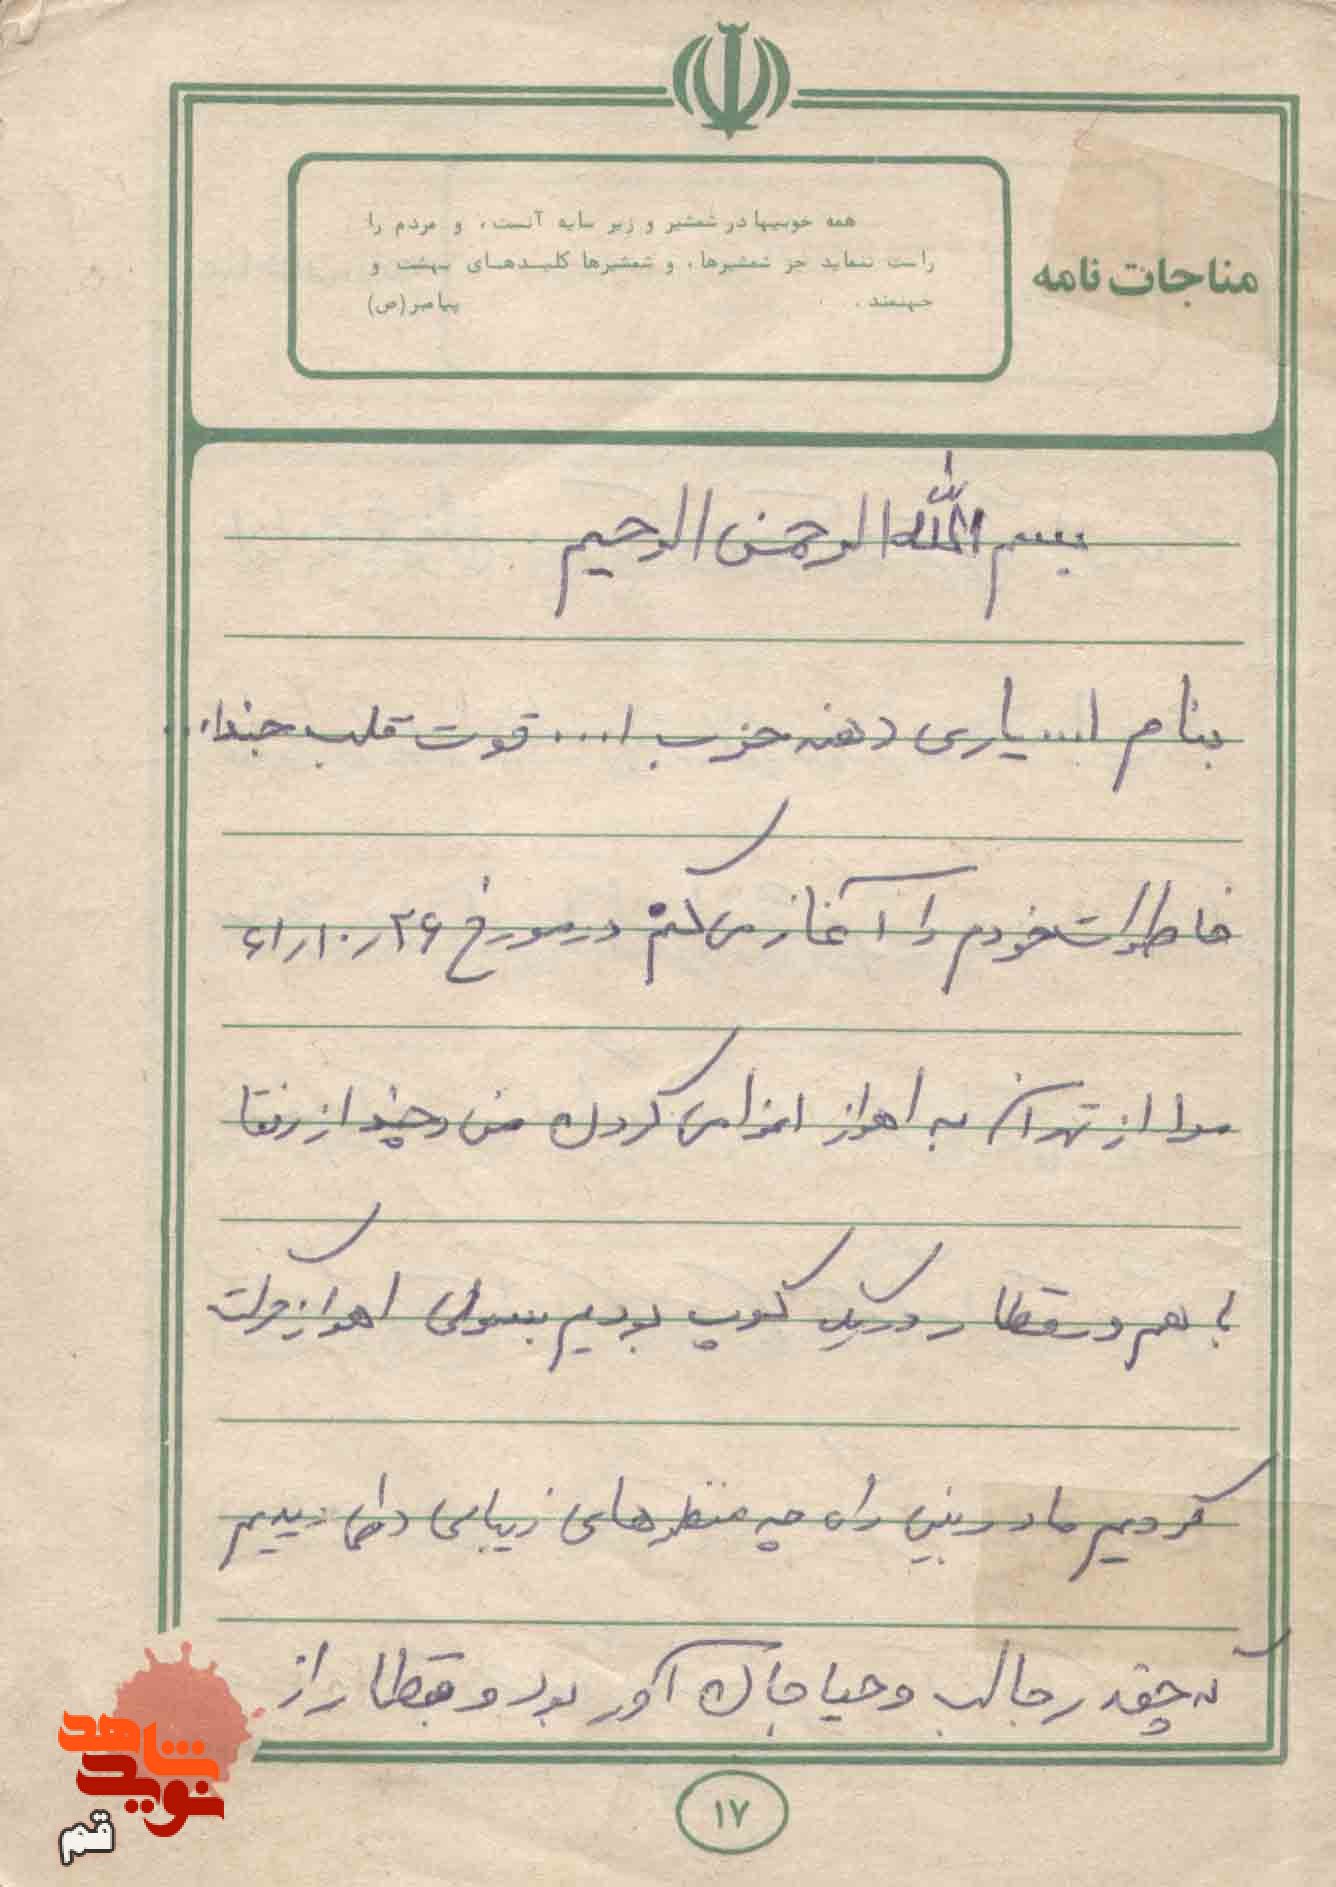 مناجات نامه
همه خوبیها در شمشیر و زیر سایه آنست، و مردم را
راست ننماید جز شمشیرها، و شمشیرها کلیدهای بهشت و
جهنمند. پیامبر(ص)
بسم الله الرحمن الرحیم
بنام ا... یاری دهنه حزب ا... قوت قلب جندا...
خاطرات خودم را آغاز می کنم در مورخ ۲۶ر۱۰ر۶۱
مرا از تهران به اهواز اعزامی کردن من و چند از رفقا
با هم در قطار در یک کوپ بودیم بسوی اهواز حرکت
کردیم ما در بین راه چه منظرهای زیبایی را می دیدیم
که چقدر جالب و حیاجان آور بود و قطار از
۱۷
نوید شاهد
قم